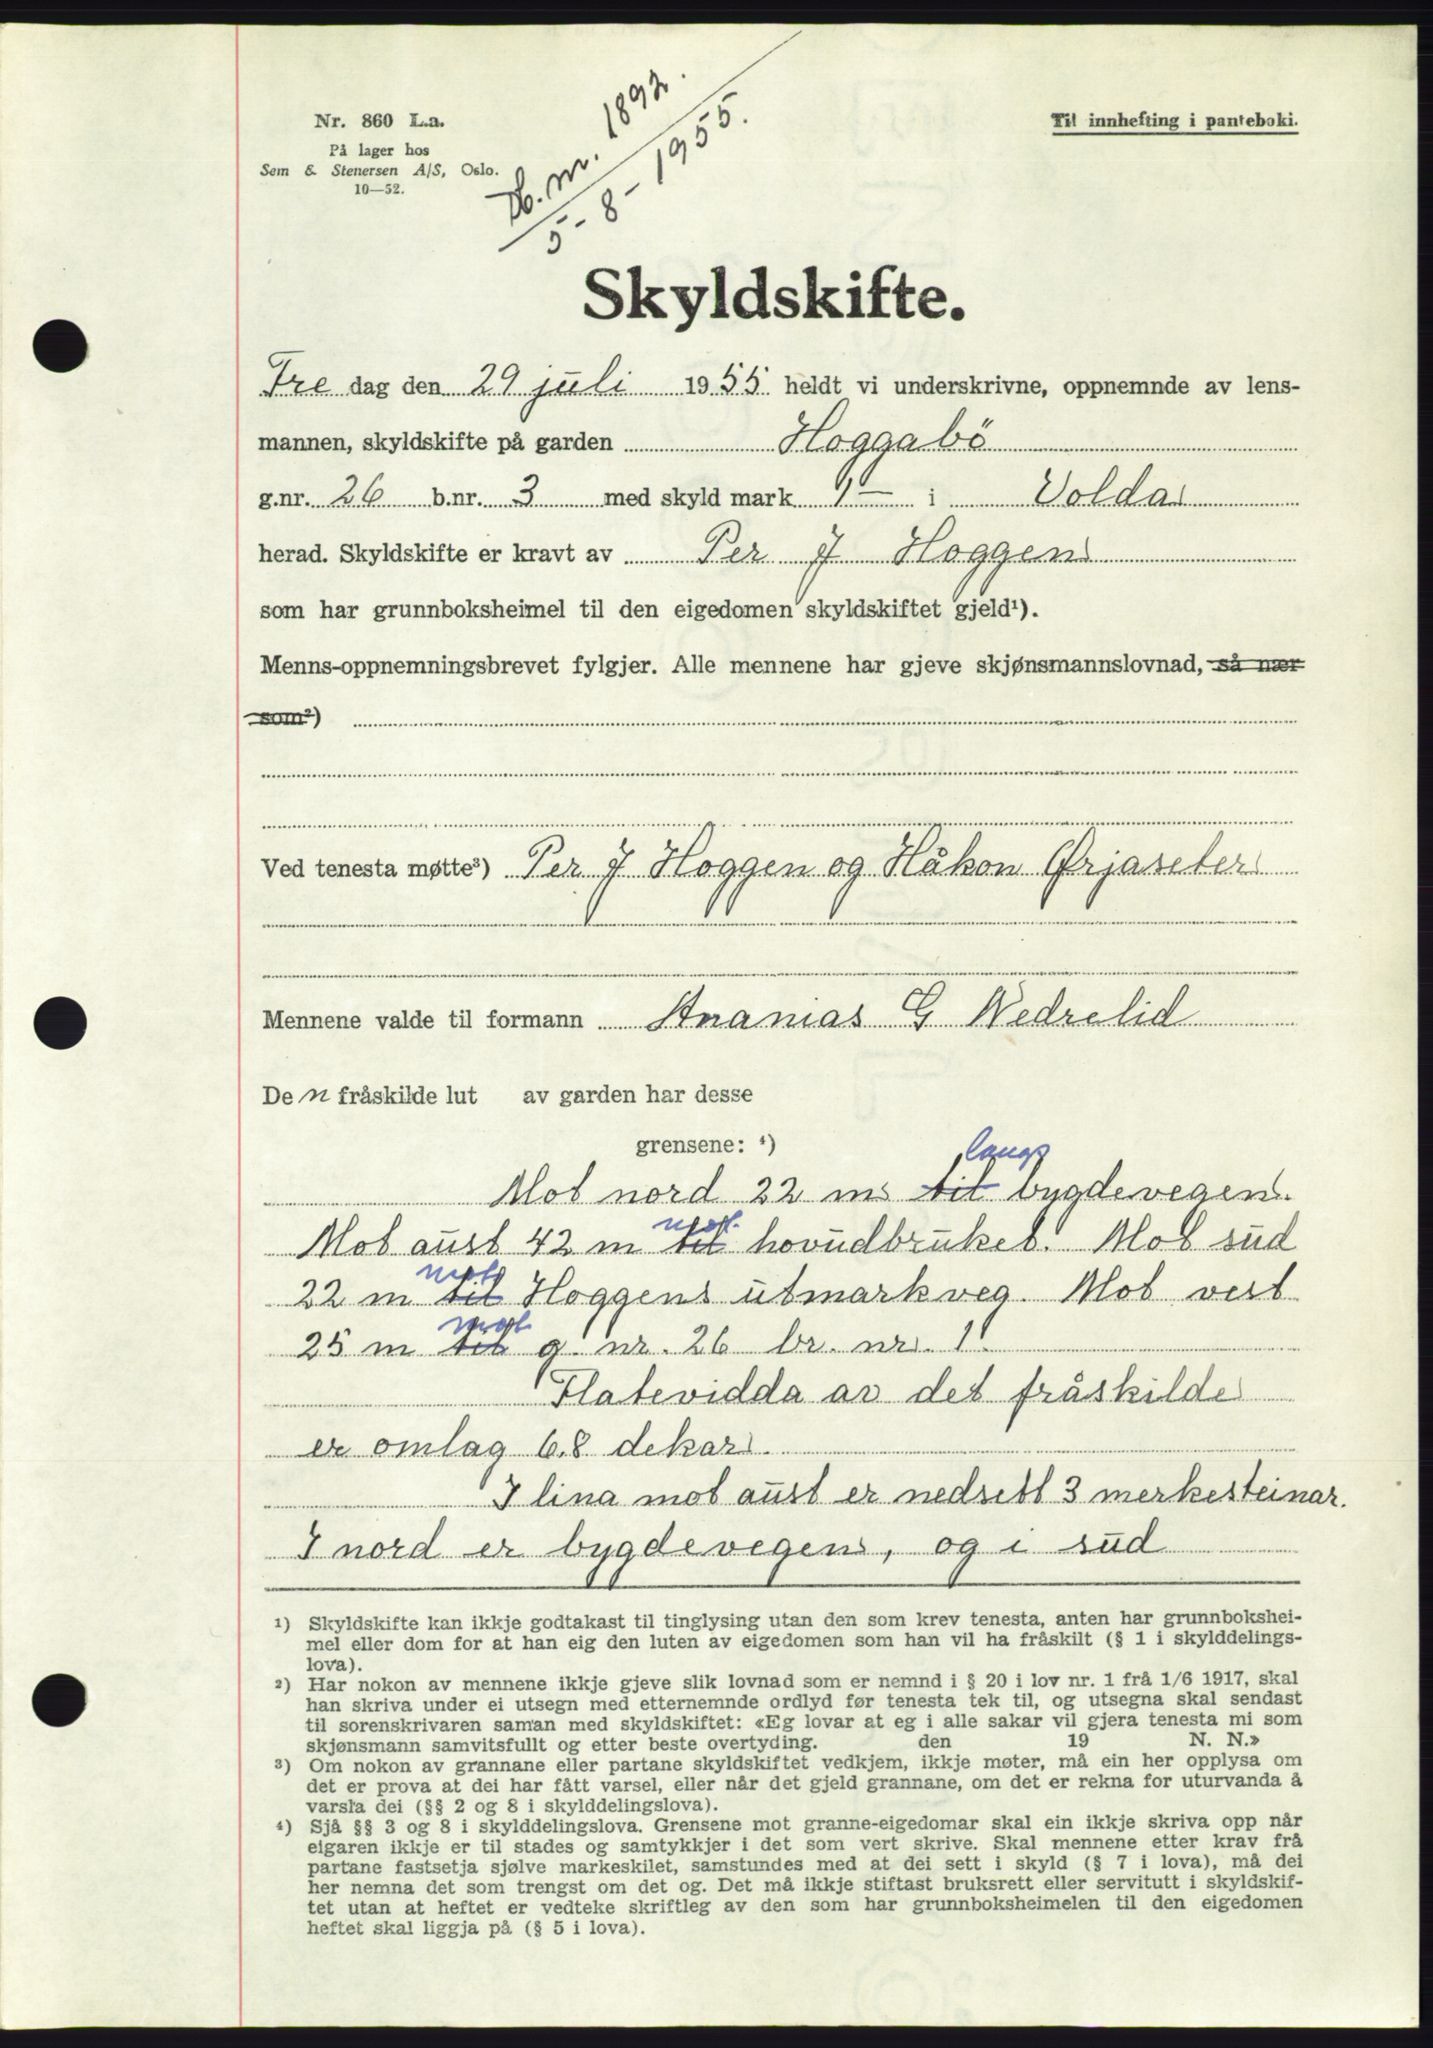 Nr. 860 L.a.
På lager hos
Sem & Stenersen A/S, Oslo.
10—52.
Til innhefting i panteboki.
Db. nr. 1892.
5-8-1955.
Skyldskifte.
Fre dag den 29 juli 1955 heldt vi underskrivne, oppnemnde av lens-
mannen, skyldskifte på garden Hoggabö
g.nr. 26 b.nr. 3 med skyld mark 1- i Volda
herad. Skyldskifte er kravt av Per J Hoggen
som har grunnboksheimel til den eigedomen skyldskiftet gjeld¹).
Menns-oppnemningsbrevet fylgjer. Alle mennene har gjeve skjønsmannslovnad, så nær
som²)
Ved tenesta møtte³) Per J Hoggen og Håkon Ørjaseter
Mennene valde til formann Ananias G Nedrelid
De n fråskilde lut av garden har desse
grensene: ⁴)
langs
Mot nord 22 m til bygdevegen.
mot
Mot aust 42 m til hovudbruket. Mot sud
mot
22 m til Hoggens utmarkveg. Mot vest
mot
25 m til g. nr. 26 br. nr. 1.
Flatevidda av det fråskilde
er omlag 6.8 dekar.
I lina mot aust er nedsett 3 merkesteinar.
I nord er bygdevegen, og i sud
¹) Skyldskifte kan ikkje godtakast til tinglysing utan den som krev tenesta, anten har grunnbokshei-
mel eller dom for at han eig den luten av eigedomen som han vil ha fråskilt (§ 1 i skylddelings-
lova).
²) Har nokon av mennene ikkje gjeve slik lovnad som er nemnd i § 20 i lov nr. 1 frå 1/6 1917, skal
han skriva under ei utsegn med etternemnde ordlyd før tenesta tek til, og utsegna skal sendast
til sorenskrivaren saman med skyldskiftet: «Eg lovar at eg i alle sakar vil gjera tenesta mi som
skjønsmann samvitsfullt og etter beste overtyding. den 19 N. N.»
³) Om nokon av grannane eller partane skyldskiftet vedkjem, ikkje møter, må ein her opplysa om
det er prova at dei har fått varsel, eller når det gjeld grannane, om det er rekna for uturvanda å
varsla dei (§§ 2 og 8 i skylddelingslova).
⁴) Sjå §§ 3 og 8 i skylddelingslova. Grensene mot granne-eigedomar skal ein ikkje skriva opp når
eigaren ikkje er til stades og samtykkjer i det som vert skrive. Skal mennene etter krav frå
partane fastsetja sjølve markeskilet, samstundes med at dei sett i skyld (§ 7 i lova), må dei
her nemna det som trengst om det og. Det må ikkje stiftast bruksrett eller servitutt i skyldskif-
tet utan at heftet er vedteke skriftleg av den som har grunnboksheimelen til den eigedomen
heftet skal liggja på (§ 5 i lova).